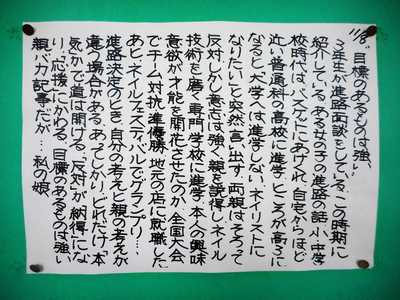 11/8 "目標のあるものは強い"
3年生が進路面談をしている。この時期に
紹介している、ある女の子の進路の話。小中学
校時代は、バスケットにあけくれ、自宅からほど
近い普通科の高校に進学。ところが高3に
なると、大学へは進学しない。ネイリストに
なりたいと突然言い出す。両親はそろって
反対。しかし意志は強く、親を説得し、ネイル
技術を磨く専門学校に進学。本人の興味
意欲が才能を開花させたのか、全国大会
でチーム対抗準優勝、地元の店に就職した
あと、ネイルフェスティバルでグランプリ…。
進路決定のとき、自分の考えと親の考えが
違う場合がある。あってしかり。どれだけ「本
気か」で道は開ける。「反対」が「納得」にな
り、「応援」にかわる。目標のあるものは強い
親バカ記事だが…私の娘。